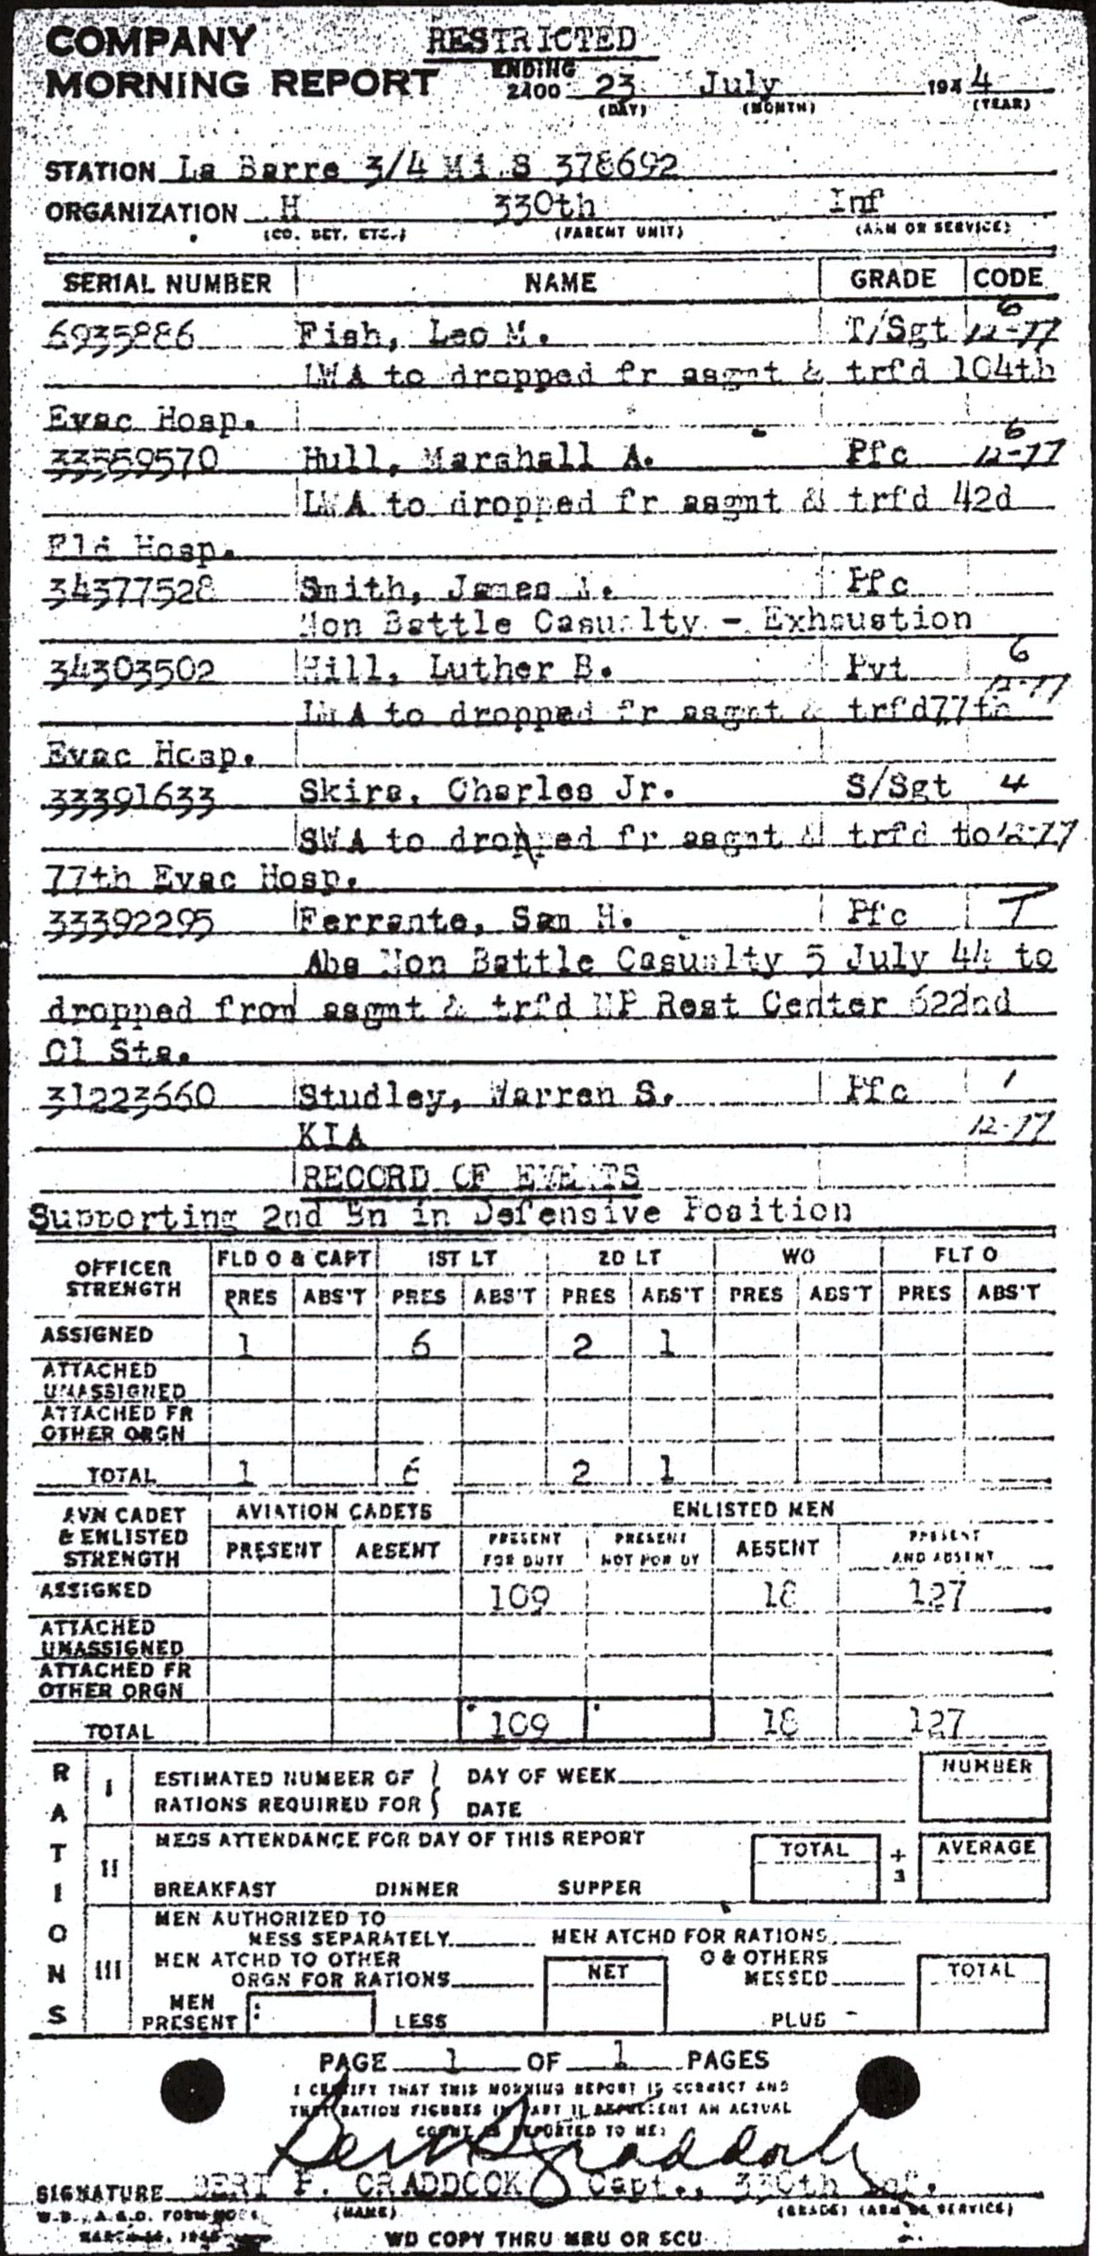 COMPANY RESTRICTED
MORNING REPORT ENDING 2400 23 July 1944
(DAY) (MONTH) (YEAR)
STATION La Barre 3/4 Mi S 378692
ORGANIZATION H 330th Inf
(CO. DET. ETC.) (PARENT UNIT) (ARM OR SERVICE)
SERIAL NUMBER NAME GRADE CODE
6935886 Fish, Leo M. T/Sgt 6 12-77
LWA to dropped fr asgnt & trfd 104th
Evac Hosp.
33559570 Hull, Marshall A. Pfc 6 12-77
LWA to dropped fr asgnt & trfd 42d
Fld Hosp.
34377528 Smith, James Pfc
Non Battle Casualty - Exhaustion
34303502 Hill, Luther B. Pvt 6
12-77
LWA to dropped fr asgnt & trfd77th
Evac Hosp.
33391633 Skirs, Charles Jr. S/Sgt 4
SWA to dropped fr asgnt & trfd to 12-77
77th Evac Hosp.
33392295 Ferrante, Sam H. Pfc T
Abs Non Battle Casualty 5 July 44 to
dropped from asgnt & trfd NP Rest Center 622nd
Cl Sta.
31223660 Studley, Warren S. Pfc 1
KIA 12-77
RECORD OF EVENTS
Supporting 2nd Bn in Defensive Position
OFFICER STRENGTH FLD O & CAPT 1ST LT 2D LT WO FLT O
PRES ABS'T PRES ABS'T PRES ABS'T PRES ABS'T PRES ABS'T
ASSIGNED 1 6 2 1
ATTACHED
UNASSIGNED
ATTACHED FR
OTHER ORGN
TOTAL 1 6 2 1
AVN CADET & ENLISTED STRENGTH AVIATION CADETS ENLISTED MEN
PRESENT ABSENT PRESENT FOR DUTY PRESENT NOT FOR DY ABSENT PRESENT AND ABSENT
ASSIGNED 109 18 127
ATTACHED
UNASSIGNED
ATTACHED FR
OTHER ORGN
TOTAL 109 18 127
RATIONS
I ESTIMATED NUMBER OF DAY OF WEEK NUMBER
RATIONS REQUIRED FOR DATE
II MESS ATTENDANCE FOR DAY OF THIS REPORT TOTAL ÷ 3 AVERAGE
BREAKFAST DINNER SUPPER
III MEN AUTHORIZED TO
MESS SEPARATELY MEN ATCHD FOR RATIONS
MEN ATCHD TO OTHER O & OTHERS
ORGN FOR RATIONS NET MESSED TOTAL
MEN
PRESENT LESS PLUS
PAGE 1 OF 1 PAGES
I CERTIFY THAT THIS MORNING REPORT IS CORRECT AND
THAT RATION FIGURES IN PART II REPRESENT AN ACTUAL
COUNT AS REPORTED TO ME:
SIGNATURE BERT F. CRADDOCK Capt., 330th Inf.
(NAME) (GRADE) (ARM OR SERVICE)
W.D., A.G.O. FORM NO. 1
WD COPY THRU MRU OR SCU